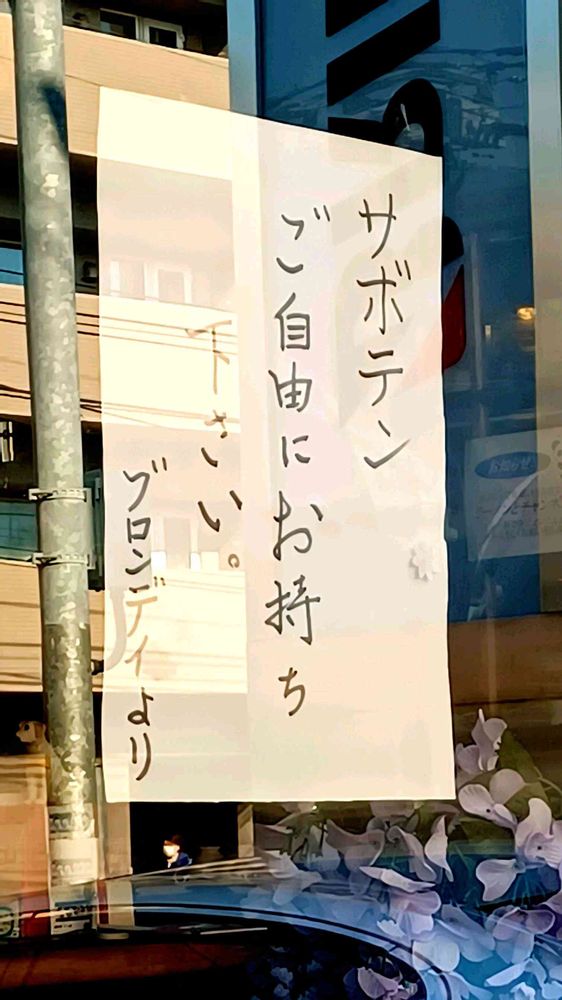 サボテン
ご自由にお持ち
下さい。
ブロンディより
お知らせ